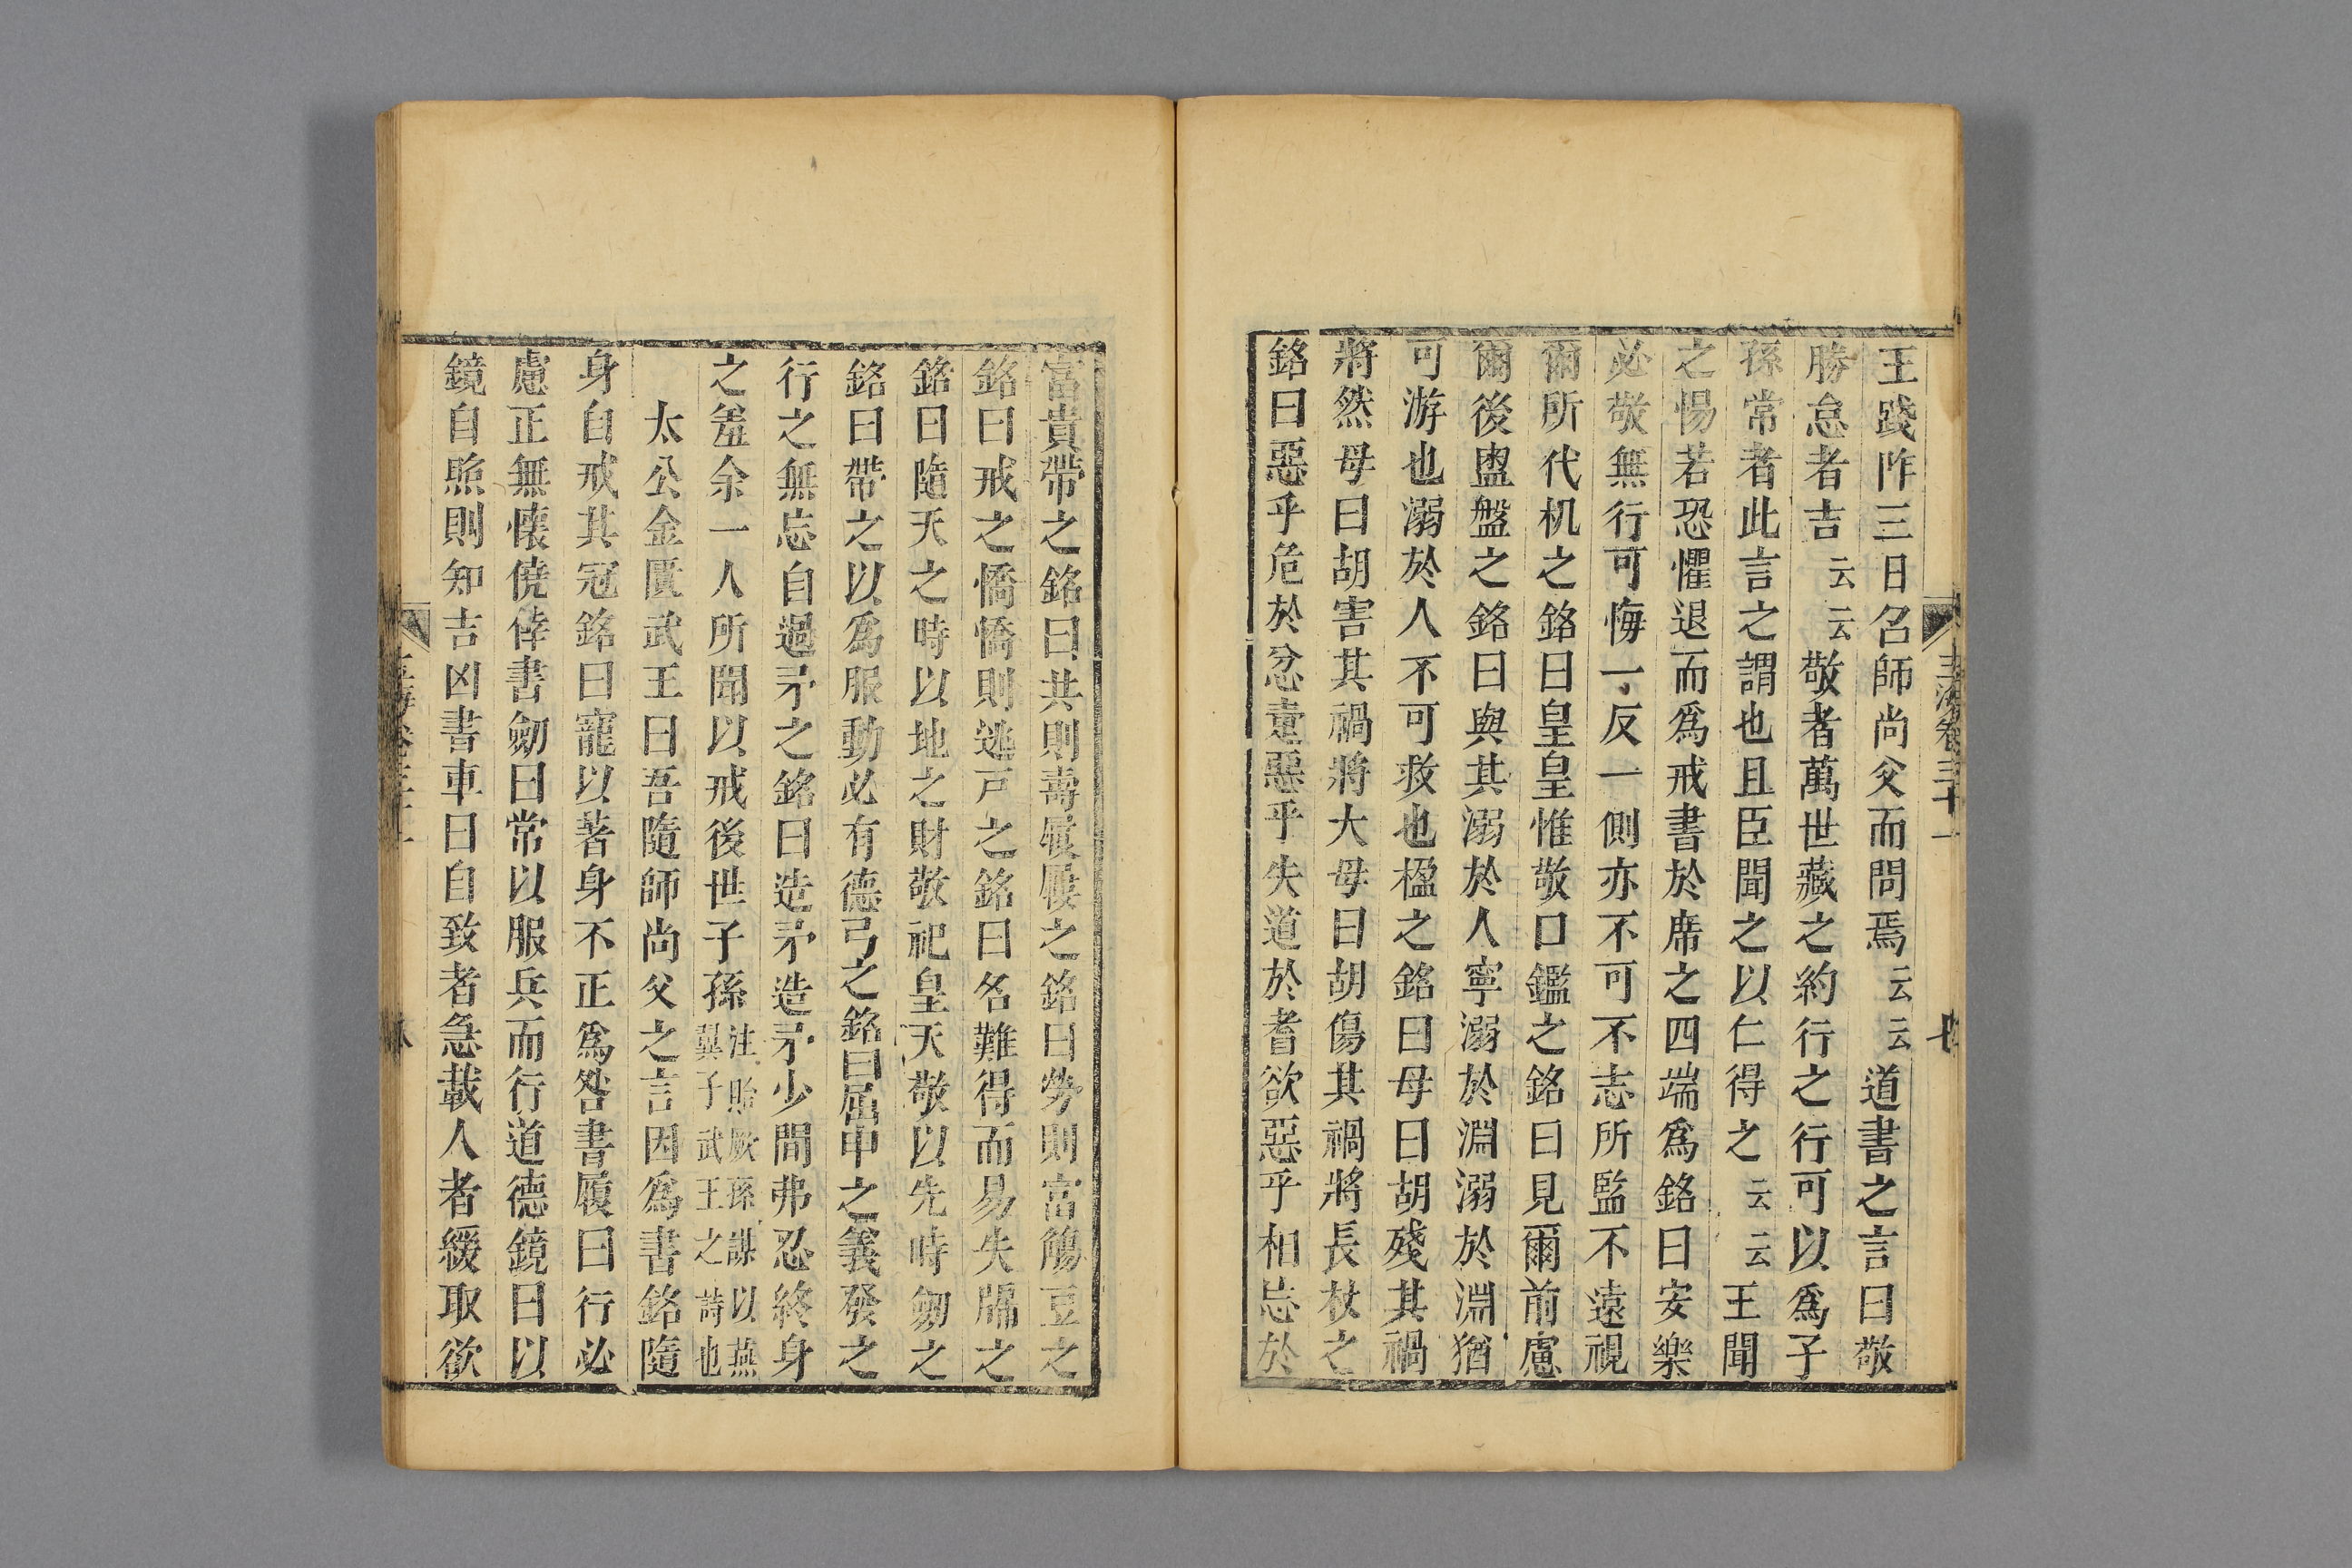 王踐阼三日召師尚父而問焉云云道書之言曰敬
勝怠者吉云云敬者萬世藏之約行之行可以爲子
孫常者此言之謂也且臣聞之以仁得之云云王聞
之惕若恐懼退而爲戒書於席之四端爲銘曰安樂
必敬無行可悔一反一側亦不可不志所監不遠視
爾所代机之銘曰皇皇惟敬口鑑之銘曰見爾前慮
爾後盥盤之銘曰與其溺於人寧溺於淵溺於淵猶
可游也溺於人不可救也楹之銘曰毋曰胡殘其禍
將然毋曰胡害其禍將大毋曰胡傷其禍將長杖之
銘曰惡乎危於忿疐惡乎失道於耆欲惡乎相忘於
玉海卷三十一
七
富貴帶之銘曰共則壽屨履之銘曰勞則富觴豆之
銘曰戒之憍憍則逃戶之銘曰名難得而易失牖之
銘曰隨天之時以地之財敬祀皇天敬以先時劒之
銘曰帶之以爲服動必有德弓之銘曰屈申之義發之
行之無忘自過矛之銘曰造矛造矛少間弗忍終身
之羞余一人所聞以戒後世子孫注貽厥孫謀以燕
翼子武王之詩也
太公金匱武王曰吾隨師尚父之言因爲書銘隨
身自戒其冠銘曰寵以著身不正爲咎書履曰行必
慮正無懷僥倖書劒曰常以服兵而行道德鏡曰以
鏡自照則知吉凶書車曰自致者急載人者緩取欲